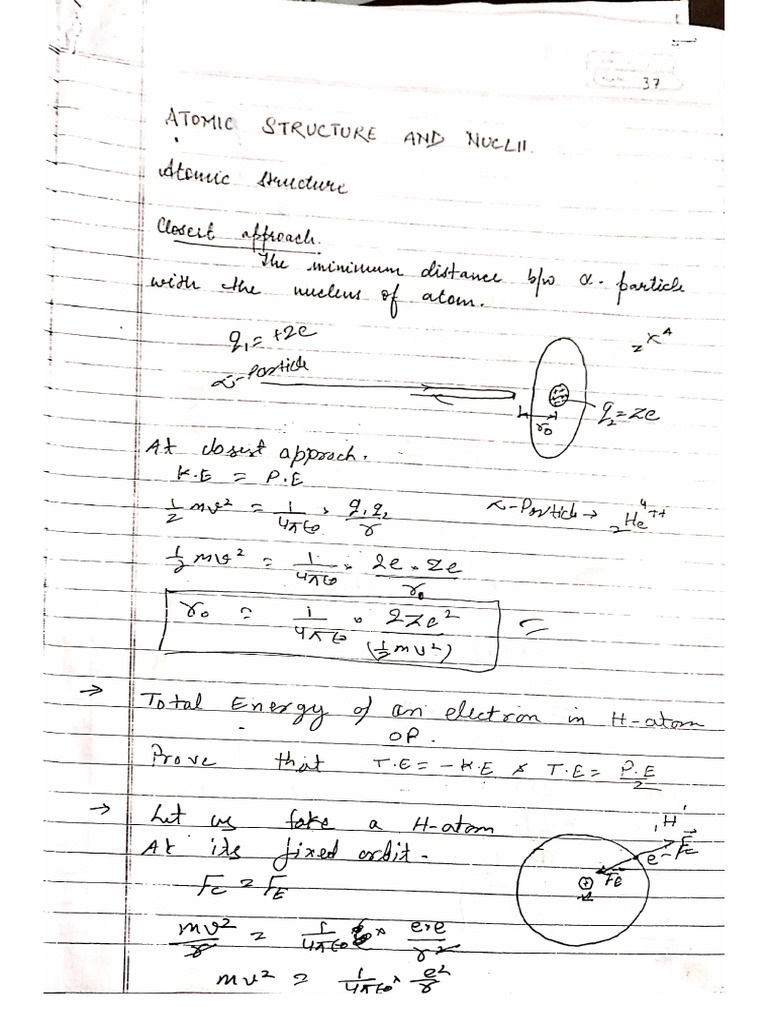 37
ATOMIC STRUCTURE AND NUCLII.
Atomic structure
Closest approach.
The minimum distance b/w α-particle
with the nucleus of atom.
q₁ = +2e
α-Particle
zXᴬ
q₂ = ze
r₀
At closest approch.
K.E = P.E
½ mv² = 1/4πε₀ × q₁q₂/r
α-Particle → ₂He⁴⁺⁺
½ mv² = 1/4πε₀ × 2e × ze/r₀
r₀ = 1/4πε₀ × 2Ze²/(½mv²) =
→ Total Energy of an electron in H-atom
OR.
Prove that T.E = -K.E & T.E = P.E/2
→ Let us take a H-atom
₁H¹
At its fixed orbit.
e⁻ Fc
FE
+
Fc = FE
mv²/r = 1/4πε₀ × e×e/r²
mv² = 1/4πε₀ × e²/r